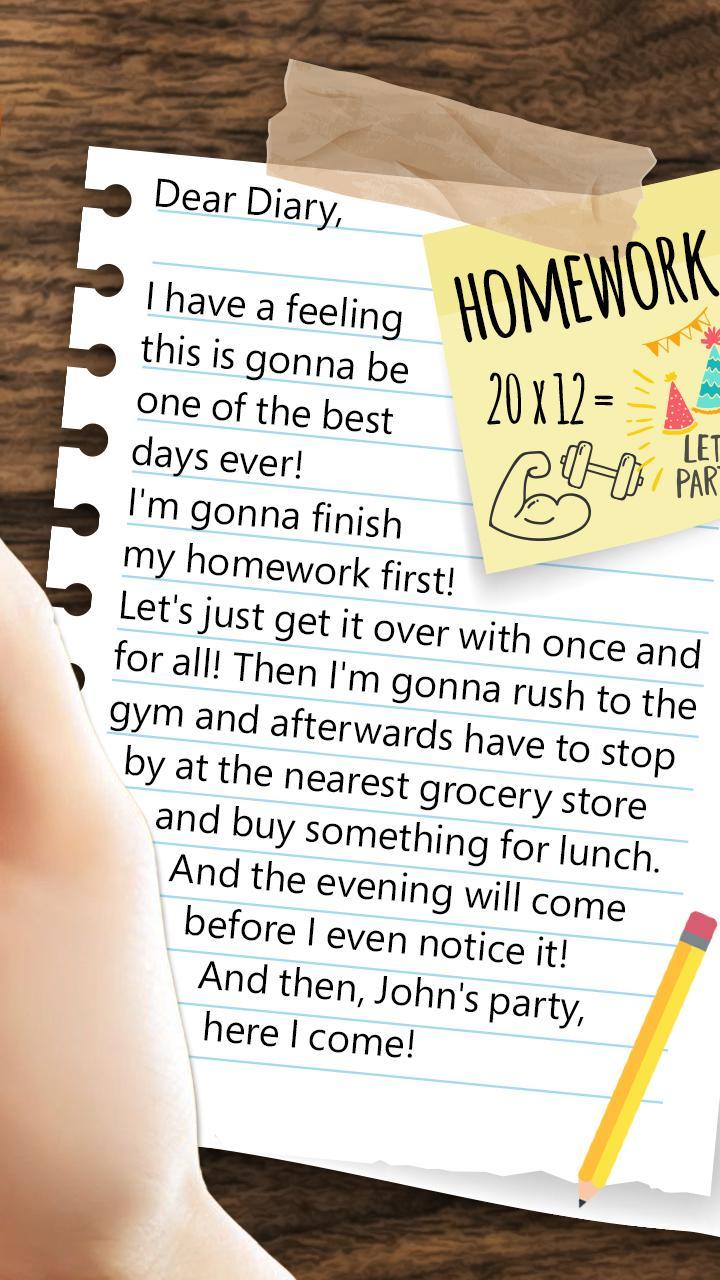 Dear Diary,
I have a feeling
this is gonna be
one of the best
days ever!
I'm gonna finish
my homework first!
Let's just get it over with once and
for all! Then I'm gonna rush to the
gym and afterwards have to stop
by at the nearest grocery store
and buy something for lunch.
And the evening will come
before I even notice it!
And then, John's party,
here I come!
HOMEWORK
20 x 12 =